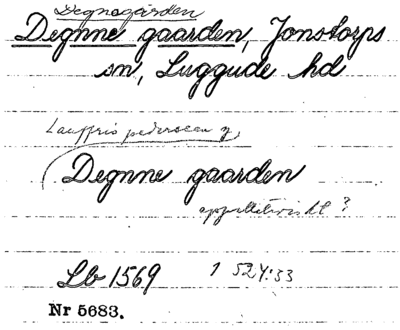 Degnagården
Degnne gaarden, Jonstorps
sn, Luggude hd
Lauffris pederssen y
Degnne gaarden
appellativiskt?
Lb 1569 1 524:33
Nr 5683.